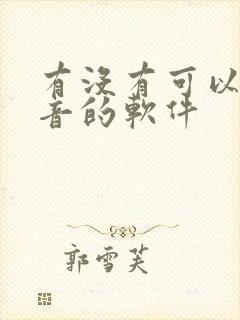 有没有可以
音的軟件
郭雪芙